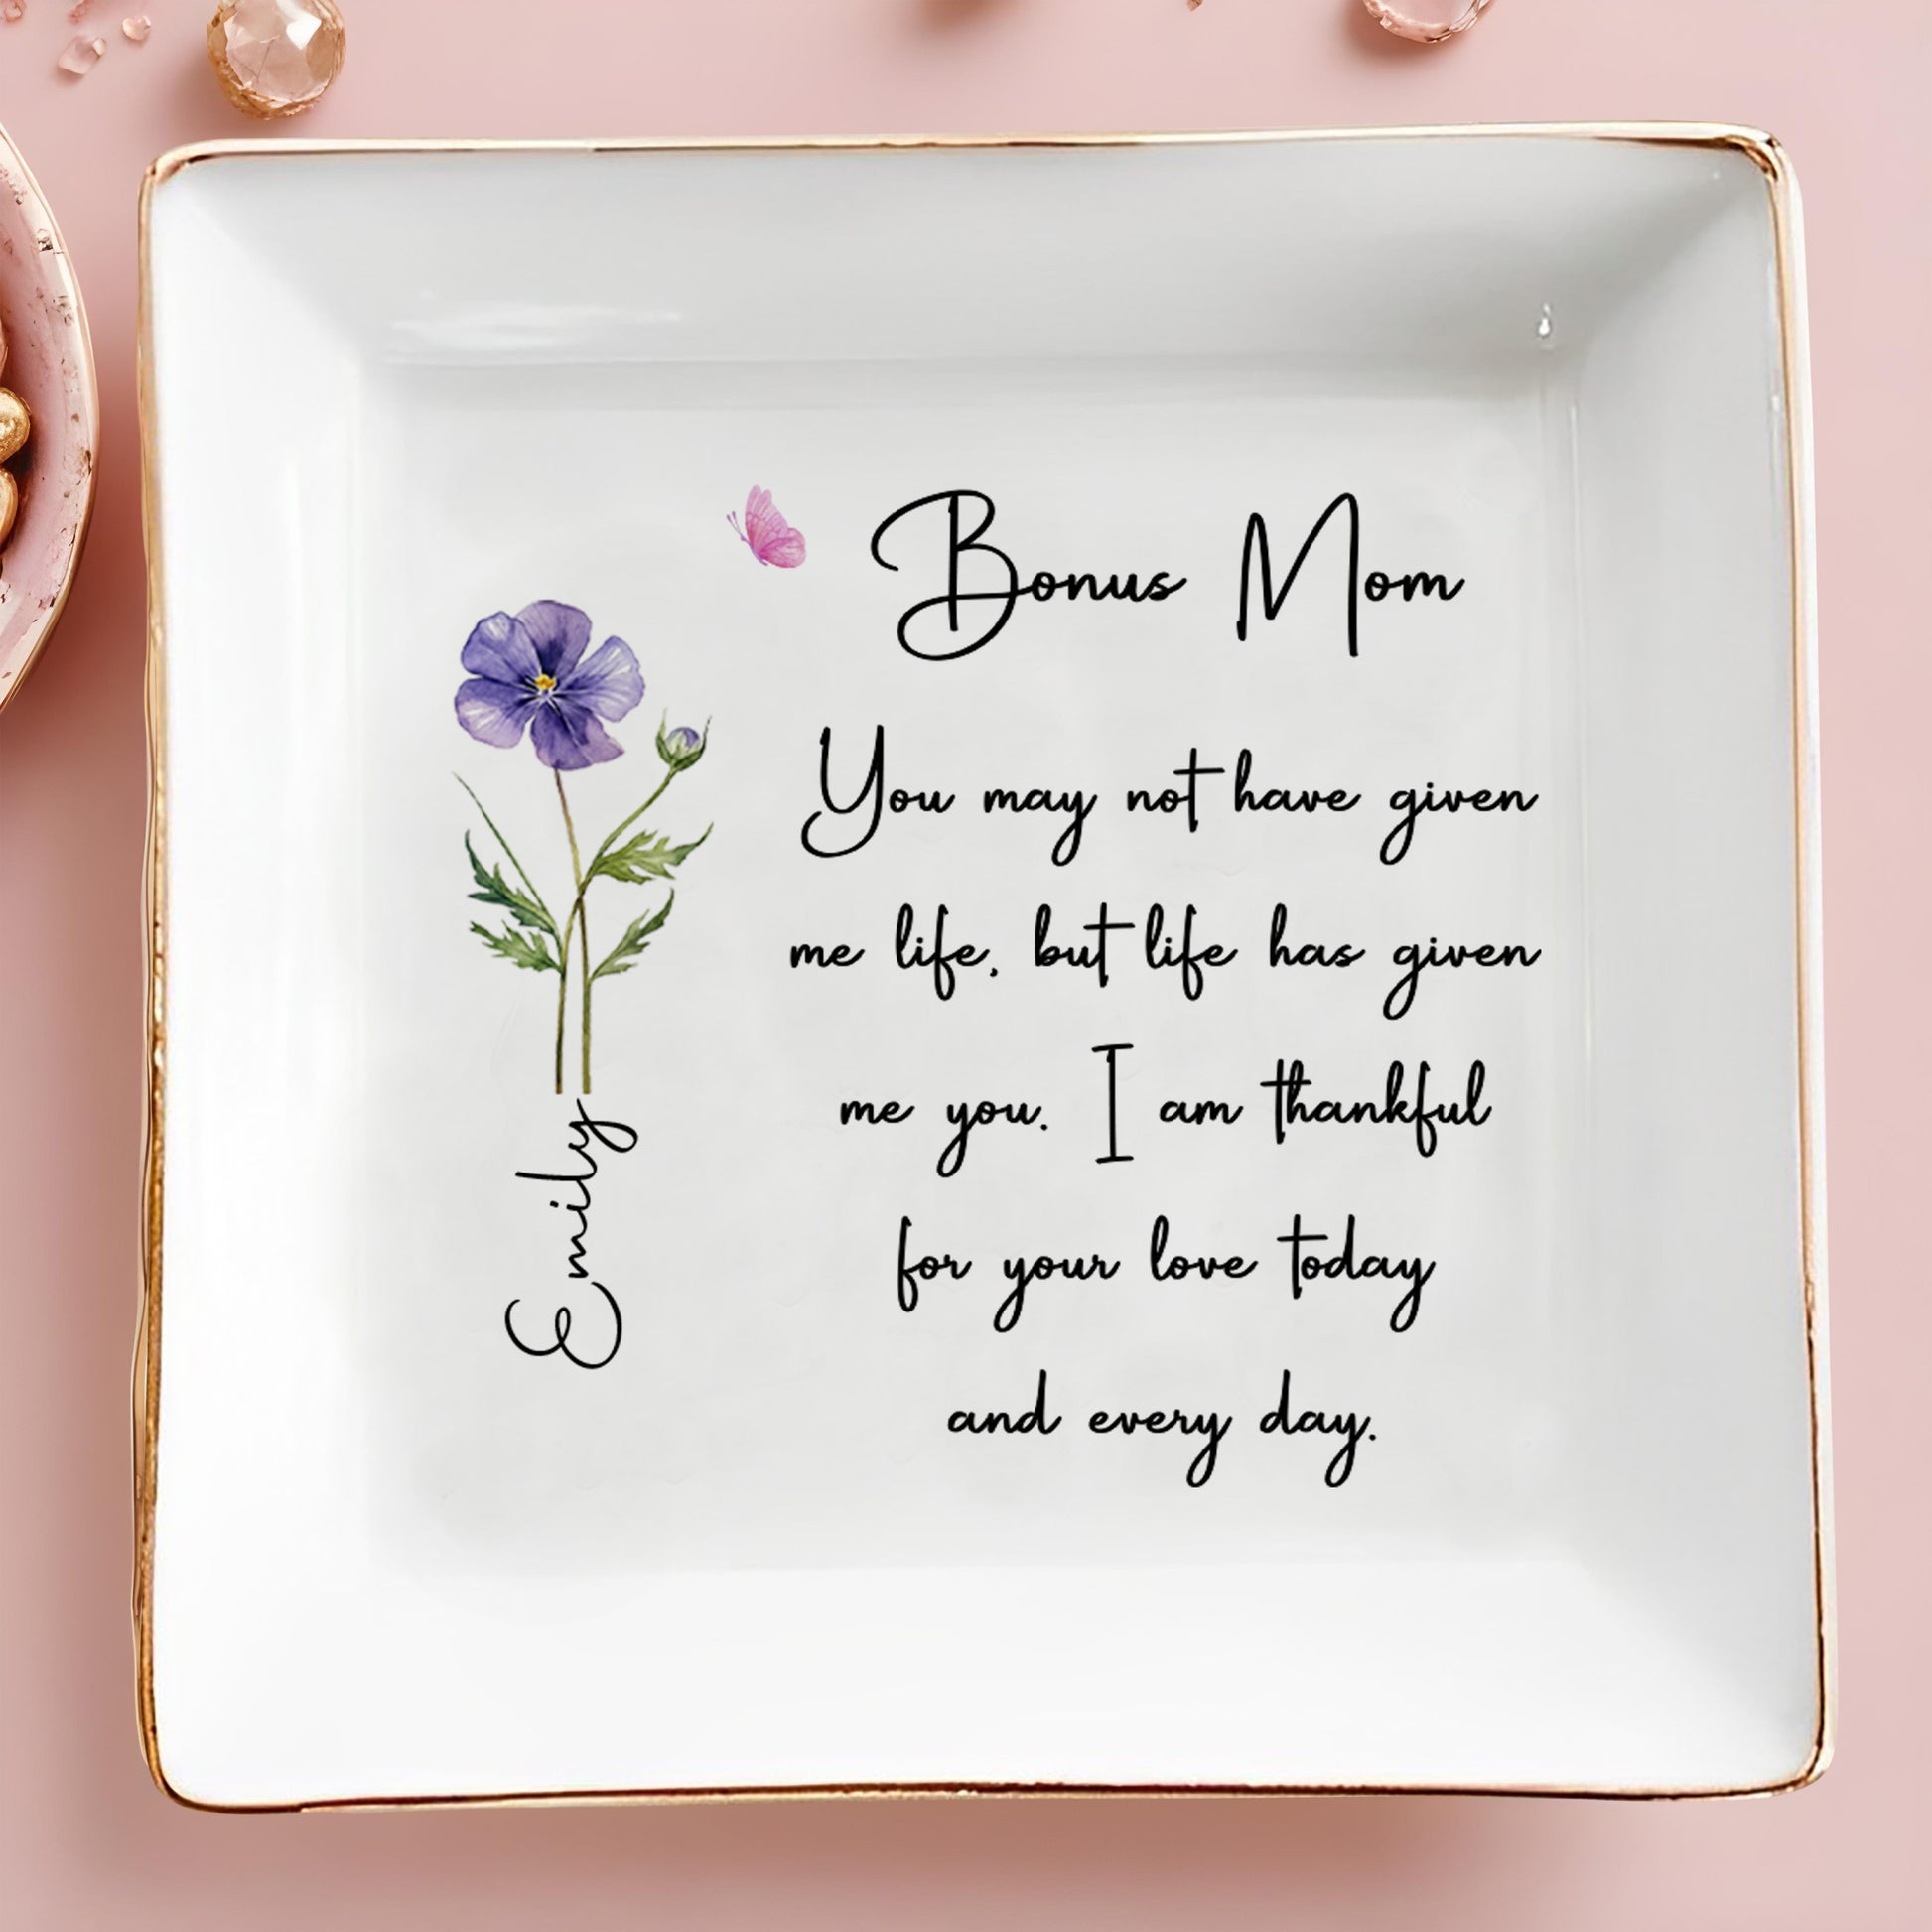 Bonus Mom
You may not have given
me life, but life has given
me you. I am thankful
for your love today
and every day.
Emily